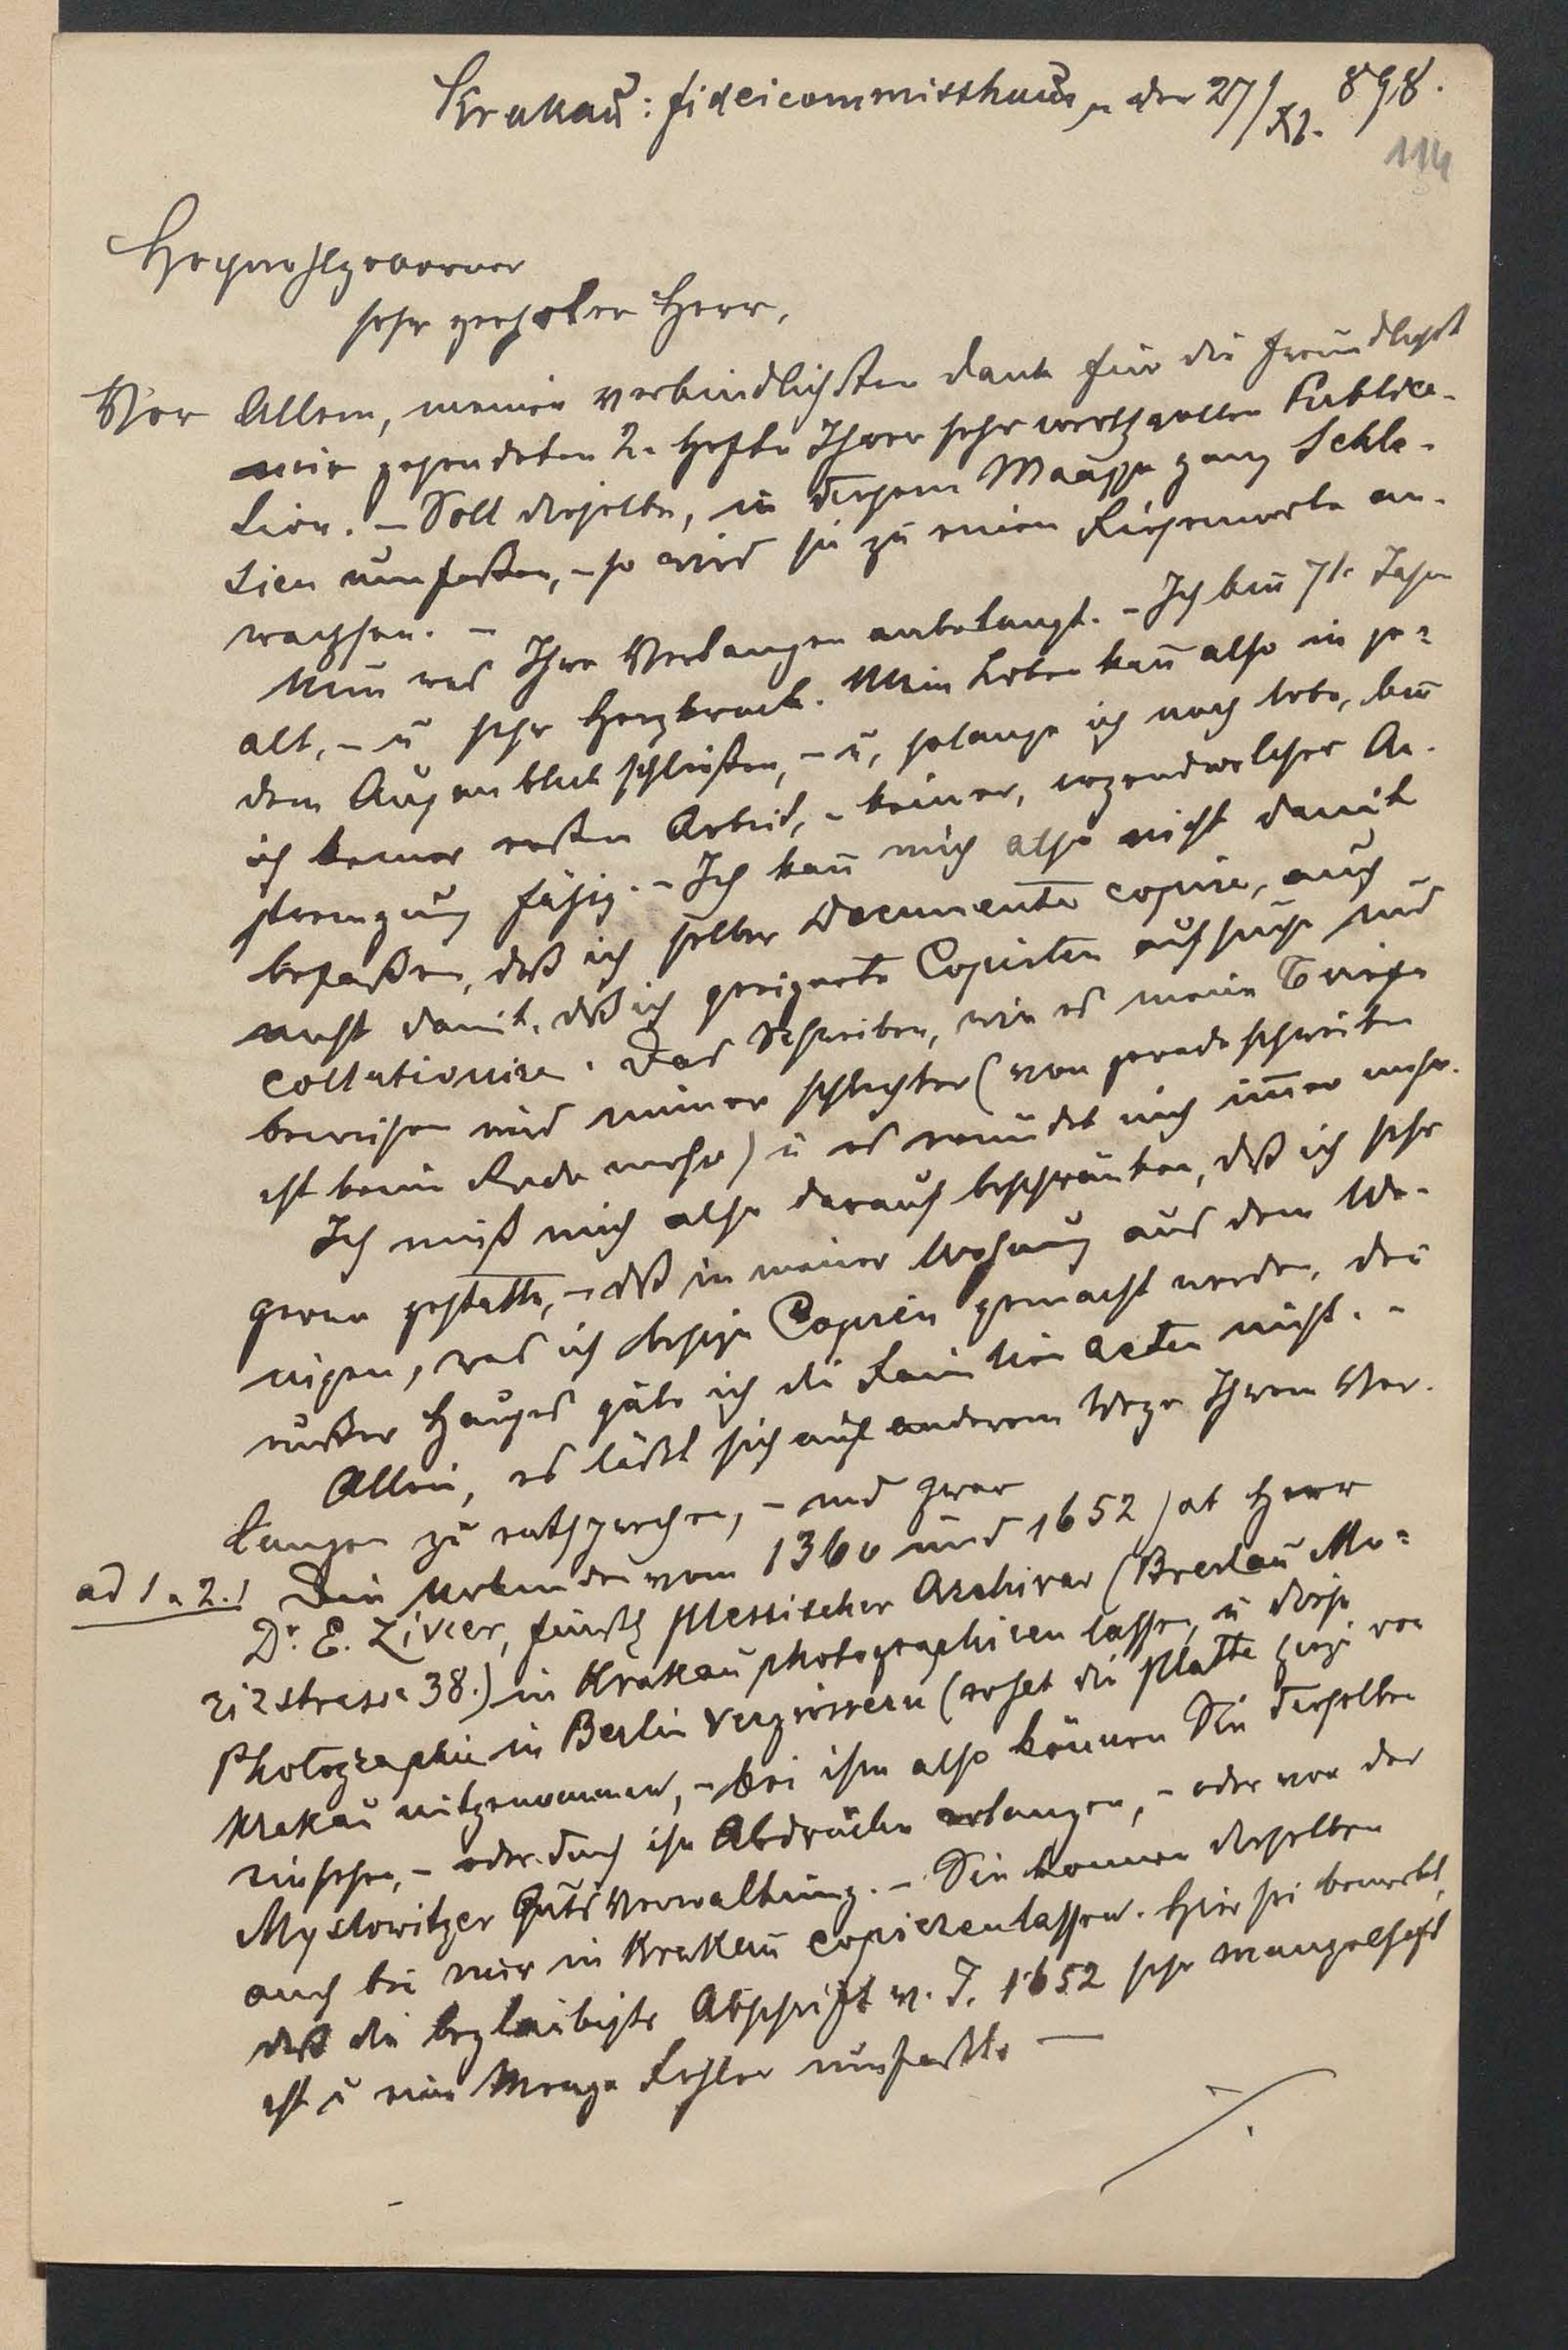 Krakau: Fideicommisshaus, - den 27/XI. 898.
114
Hochwohlgeborner
sehr geehrter Herr,
Vor Allem, meinen verbindlichsten Dank für die freundlichst
mir gesendeten 2. Hefte Ihrer sehr werthvollen Publica-
tion. - Soll dieselbe, in diesem Maasse ganz Schle-
sien umfassen, - so wird sie zu einem Riesenwerke an-
wachsen. -
Nun was Ihre Verlangen anbelangt. - Ich bin 71. Jahre
alt, - u sehr herzkrank. Mein Leben kañ also in je=
dem Augenblick schließen, - u, solange ich noch lebe, biñ
ich keiner ersten Arbeit, - keiner, irgendwelcher An-
strengung fähig. - Ich kañ mich also nicht damit
befaßen, daß ich selber Documente copire, auch
nicht damit, daß ich geeignete Copisten aufsuche und
collationire. Das Schreiben, wie es meine Briefe
beweisen wird immer schlechter (von gerade schreiben
ist keine Rede mehr) u es ermüdet mich im̃er mehr.
Ich muß mich also darauf beschränken, daß ich sehr
gerne gestatte, - daß in meiner Wohnung aus dem We-
nigen, was ich besize Copien gemacht werden, den
außer Hauses gäbe ich die Familien acten nicht. -
Allein, es läßt sich auf anderem Wege Ihrem Ver-
langen zu entsprechen, - und zwar
ad 1 u 2.) Die Urkunden vom 1360 und 1652 hat Herr
Dr. E. Zivier, fürstl Plessischer Archivar (Breslau Mo=
rizstrasse 38.) in Krakau photographiren lassen, u diese
Photographie in Berlin vergrössern (er hat die Platte hiezu von
Krakau mitgenommen, - bei ihm also können Sie dieselben
einsehen, - oder durch ihn Abdrücke erlangen, - oder von der
Myslowitzer Guts Verwaltung. - Sie können dieselben
auch bei mir in Krakau copieren lassen. Hier sei bemerkt,
daß die beglaubigte Abschrift v. J. 1652 sehr mangelhaft
ist u eine Menge Fehler umfasst. —